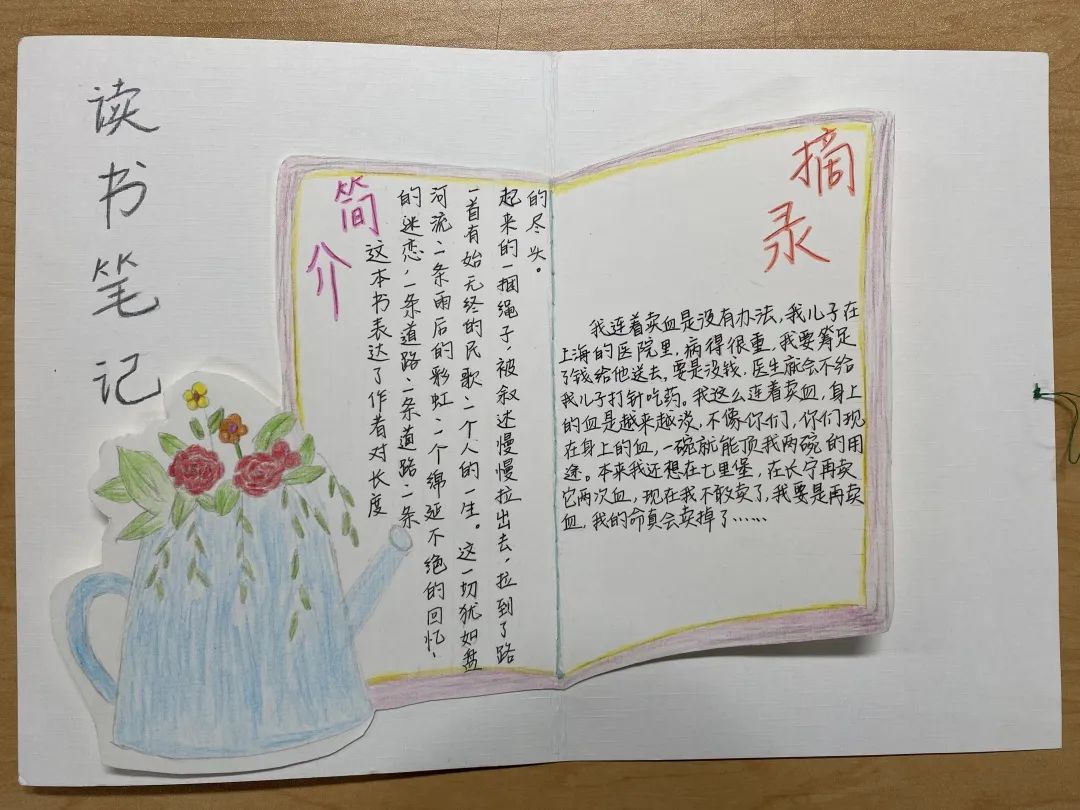 读书笔记
简介
这本书表达了作者对长度
的迷恋，一条道路、一条道路、一条
河流、一条雨后的彩虹、一个绵延不绝的回忆、
一首有始无终的民歌、一个人的一生。这一切犹如盘
起来的一捆绳子，被叙述慢慢拉出去，拉到了路
的尽头。
摘录
我连着卖血是没有办法，我儿子在
上海的医院里，病得很重，我要筹足
了钱给他送去，要是没钱，医生就会不给
我儿子打针吃药。我这么连着卖血，身上
的血是越来越淡，不像你们，你们现
在身上的血，一碗就能顶我两碗的用
途。本来我还想在七里堡，在长宁再卖
它两次血，现在我不敢卖了，我要是再卖
血，我的命真会卖掉了……